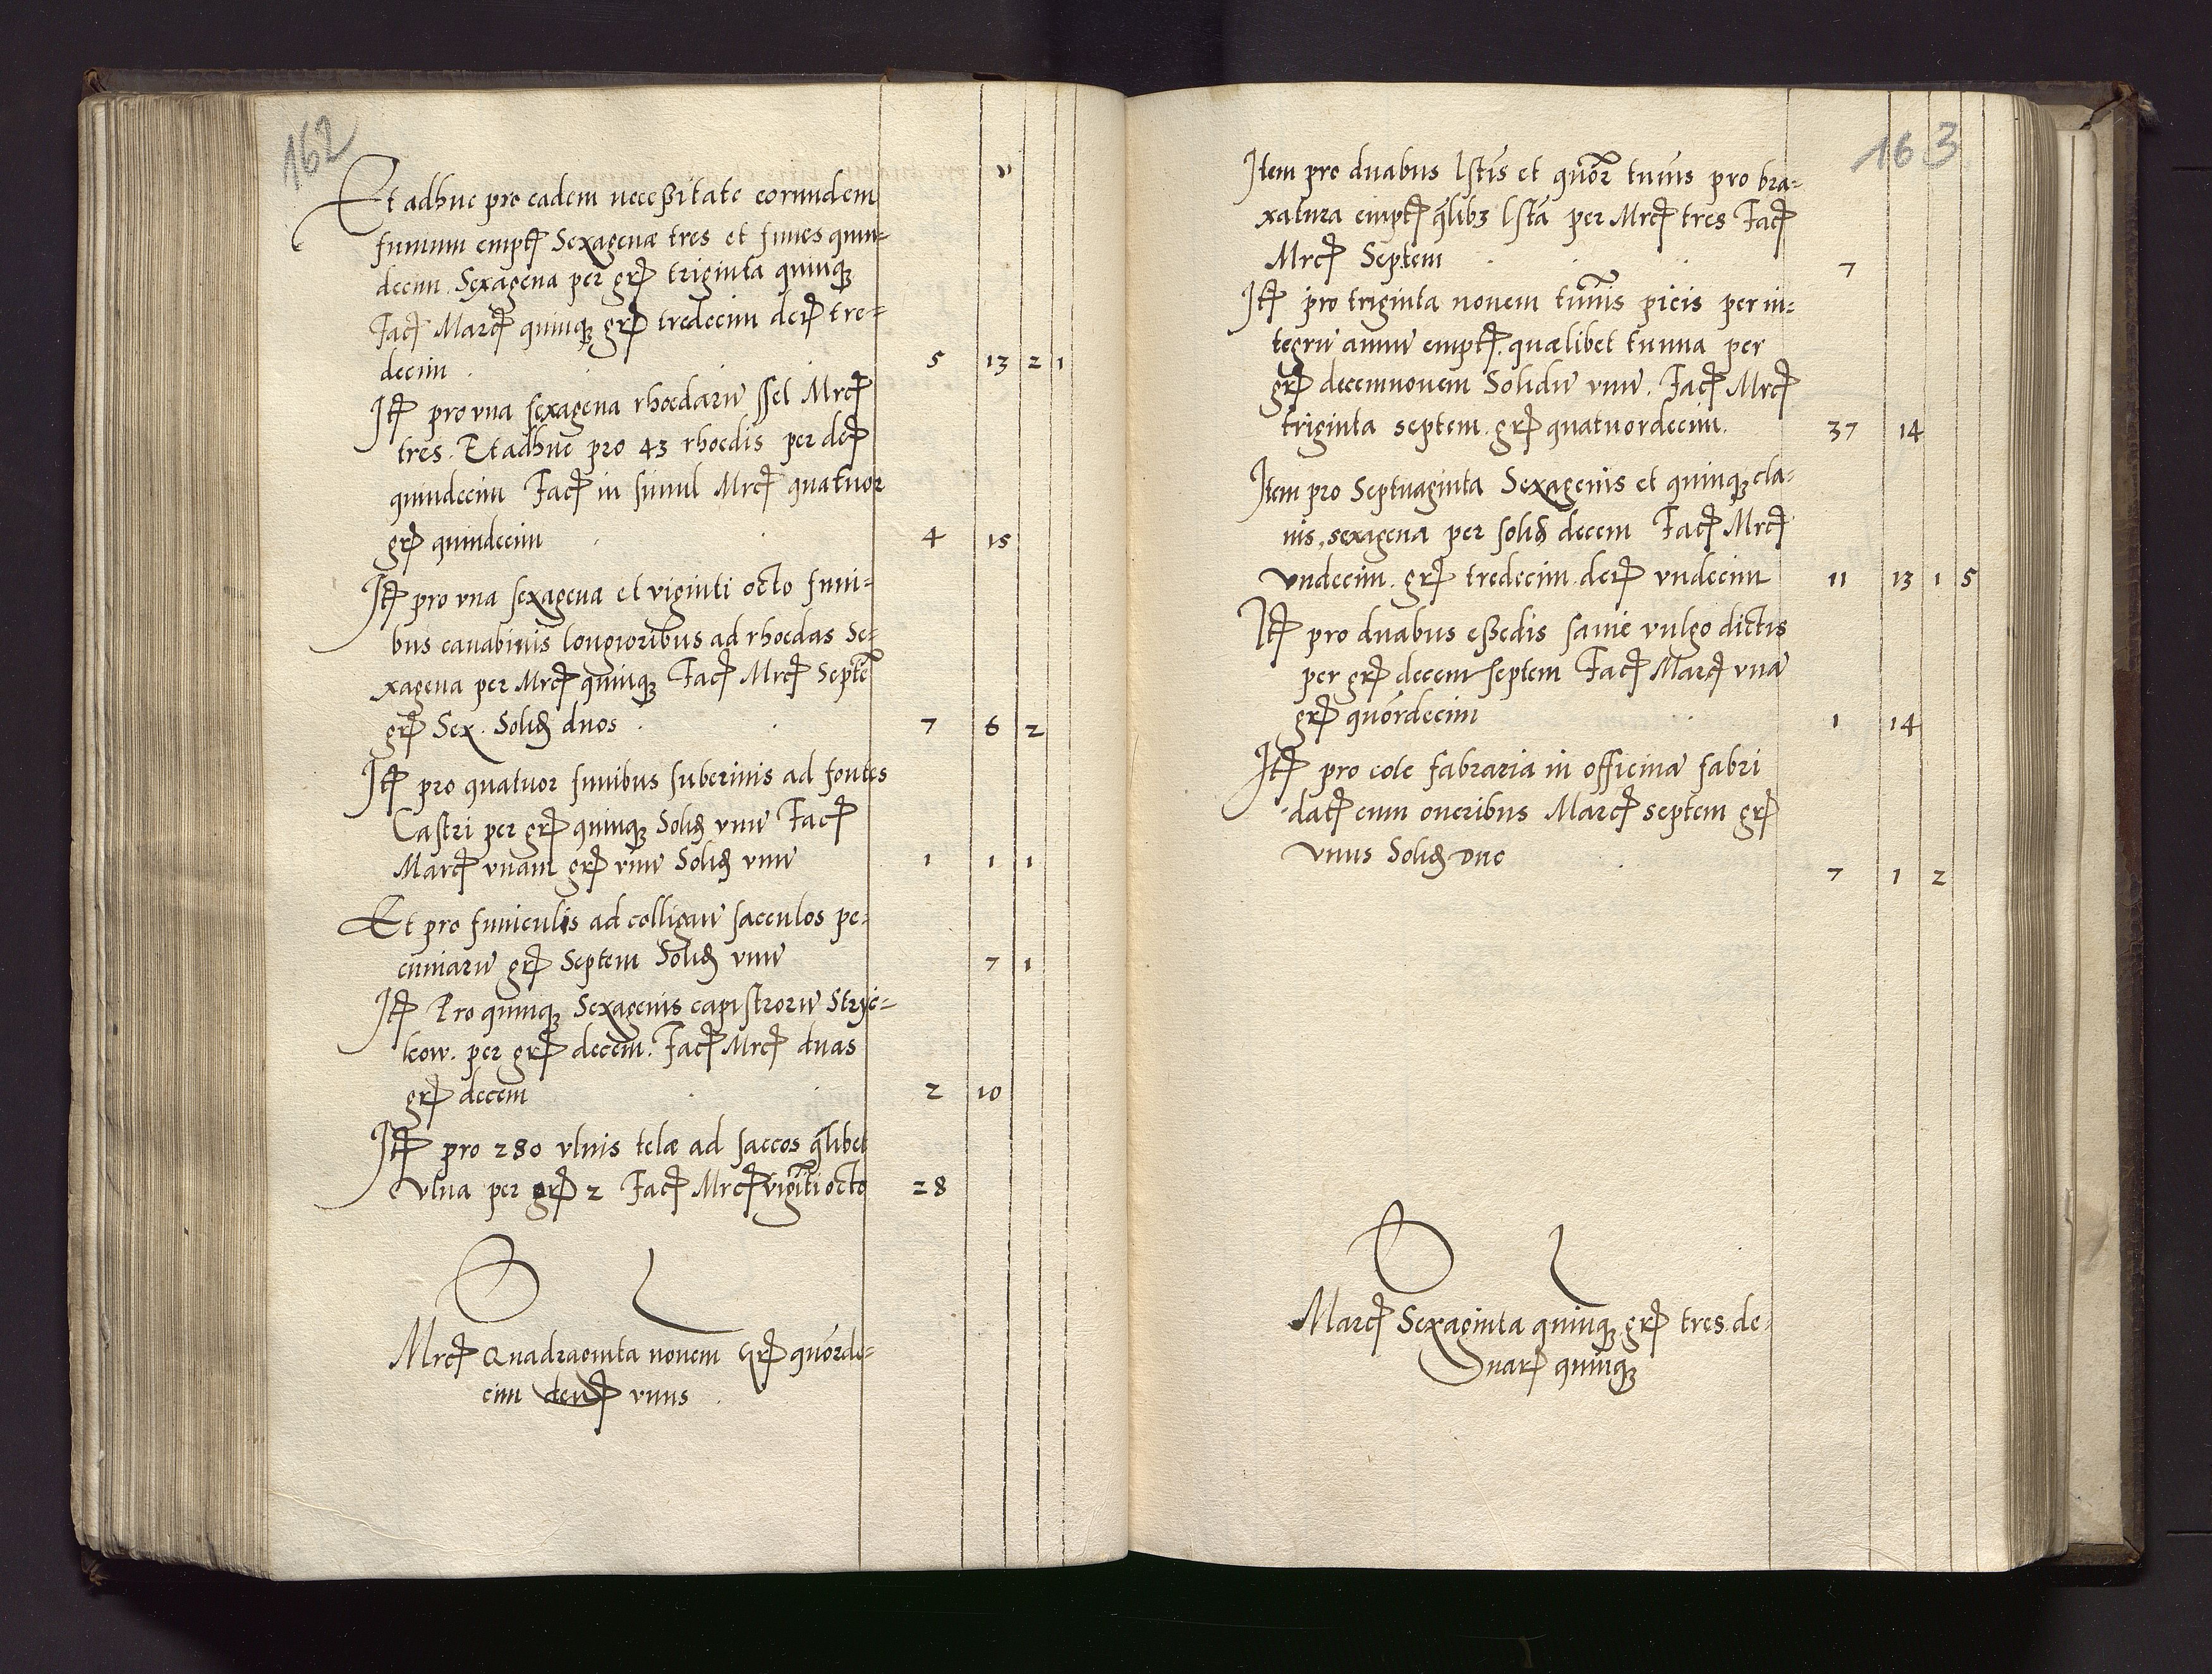 162
Et adhuc pro eadem neceßitate eorundem
funium empt Sexagenæ tres et funes quin=
decim. Sexagena per gr triginta quinq
Fac Marc quinq gr tredecim der tre=
decim . 5 13 2 1
It pro vna sexagena rhoedarū ssel Mrc
tres. Et adhuc pro 43 rhoedis per der
quindecim Fac in simul Mrc quatuor
gr quindecim 4 15
It pro vna sexagena et viginti octo funi=
bus canabinis longioribus ad rhoedas Se=
xagena per Mrc quinq Fac Mrc Septē
gr Sex. Solid duos . 7 6 2
It pro quatuor funibus suberinis ad fontes
Castri per gr quinq Solid vnū Fac
Marc vnam gr vnū Solid vnū 1 1 1
Et pro funiculis ad colligan̄ sacculos pe=
cuniarū gr Septem Solid vnū 7 1
It Pro quinq Sexagenis capistrorū Stryc=
kow. per gr decem. Fac Mrc duas
gr decem 2 10
It pro 280 vlnis telæ ad saccos q̄libet
vlna per gr 2 Fac Mrc viginti octo 28
Mrc Quadraginta nouem Gr quōrde=
cim den vnus .
163
Item pro duabus lstis et quōr tunīs pro bra=
xatura empt q̄libз lstā per Mrc tres Fac
Mrc Septem 7
It pro triginta nouem tun̄is picis per in=
tegrū annū empt. quælibet tunna per
gr decemnouem Solidū vnū. Fac Mrc
triginta septem. gr quatuordecim. 37 14
Item pro Septuaginta Sexagenis et quinq cla=
uis, sexagena per solid decem Fac Mrc
vndecim. gr tredecim. der vndecim 11 13 1 5
It pro duabus eßedis sanie vulgo dictis
per gr decem septem Fac Marc vnā
gr quōrdecim 1 14
It pro cote fabraria in officinā fabri
dat cum oneribus Marc septem gr
vnus Solid duo 7 1 2
Marc Sexaginta quinq gr tres. de=
nar quinq